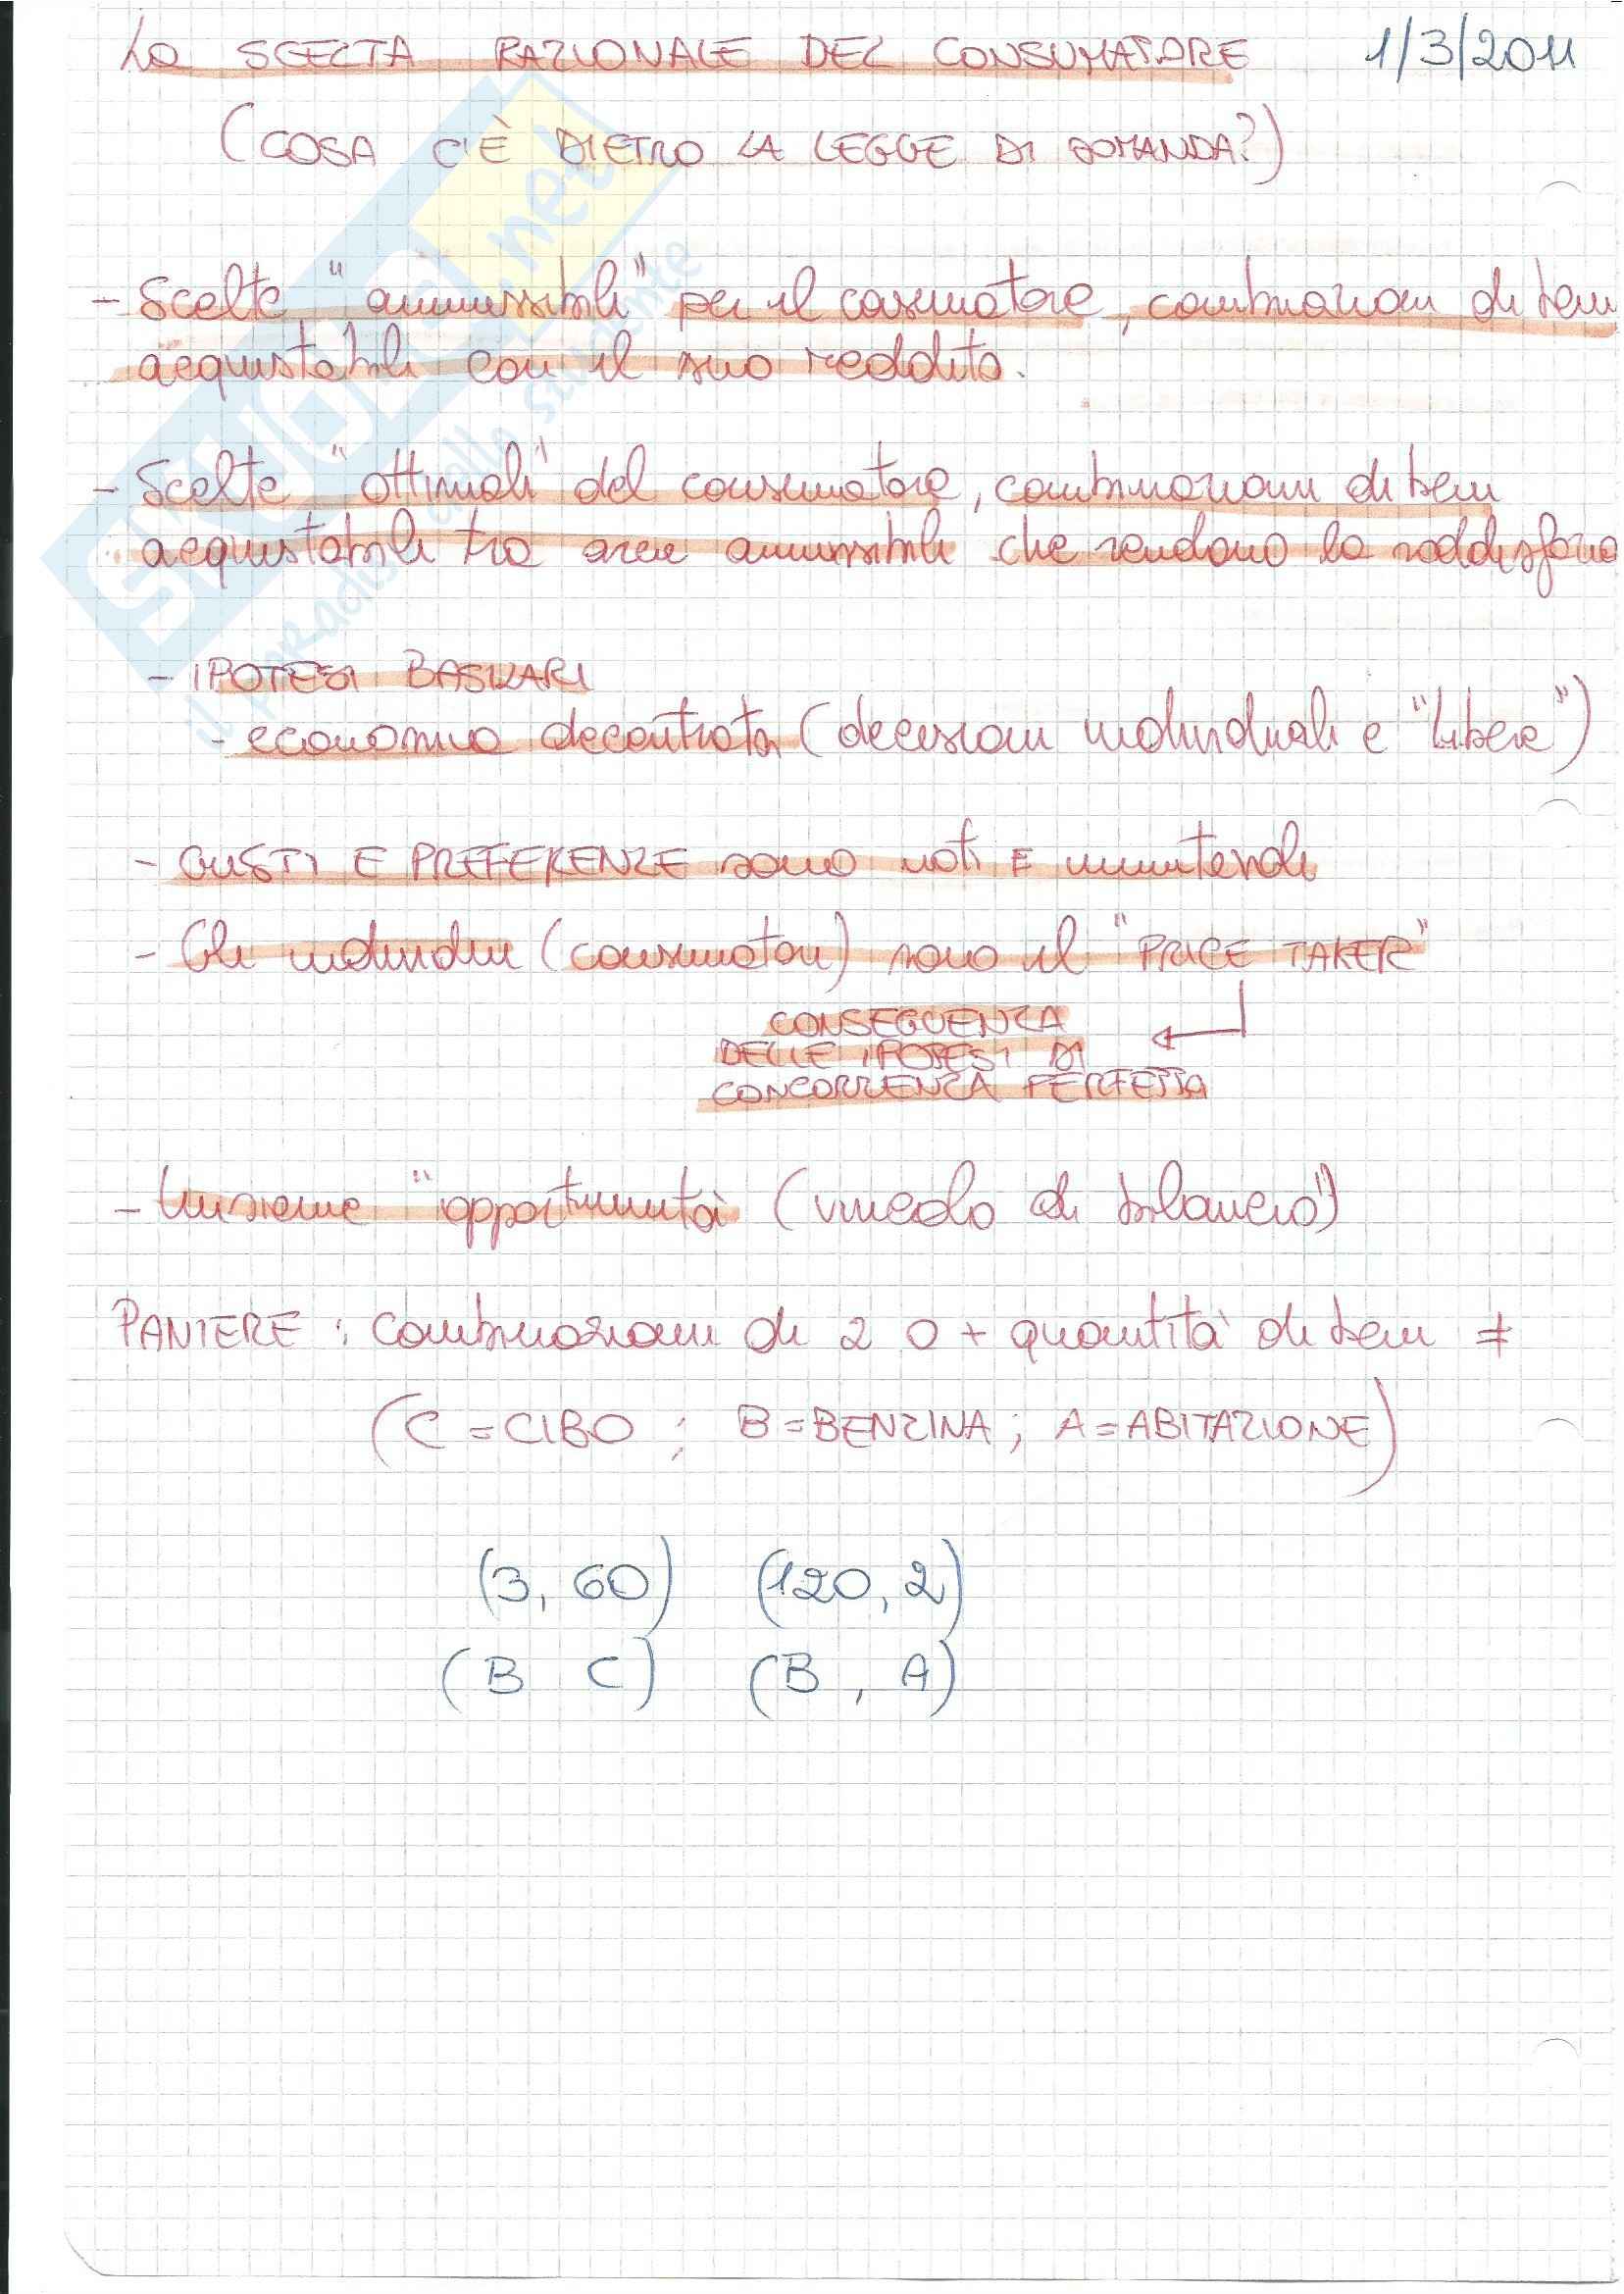 La SCELTA RAZIONALE DEL CONSUMATORE 1/3/2011
(COSA C'È DIETRO LA LEGGE DI DOMANDA?)
- Scelte "ammissibili" per il consumatore, combinazioni di beni
acquistabili con il suo reddito.
- Scelte "ottimali" del consumatore, combinazioni di beni
acquistabili tra aree ammissibili che rendono la soddisfazio
- IPOTESI BASILARI
- economia decentrata (decisioni individuali e "libere")
- GUSTI E PREFERENZE sono noti E immutevoli
- Gli individui (consumatori) sono il "PRICE TAKER"
CONSEGUENZA
DELLE IPOTESI DI
CONCORRENZA PERFETTA
- Insieme "opportunità (vincolo di bilancio")
PANIERE : combinazioni di 2 o + quantità di beni ≠
(C = CIBO ; B = BENZINA ; A = ABITAZIONE)
(3, 60) (120, 2)
(B C) (B , A)
SKUOLA.net
il paradiso dello studente